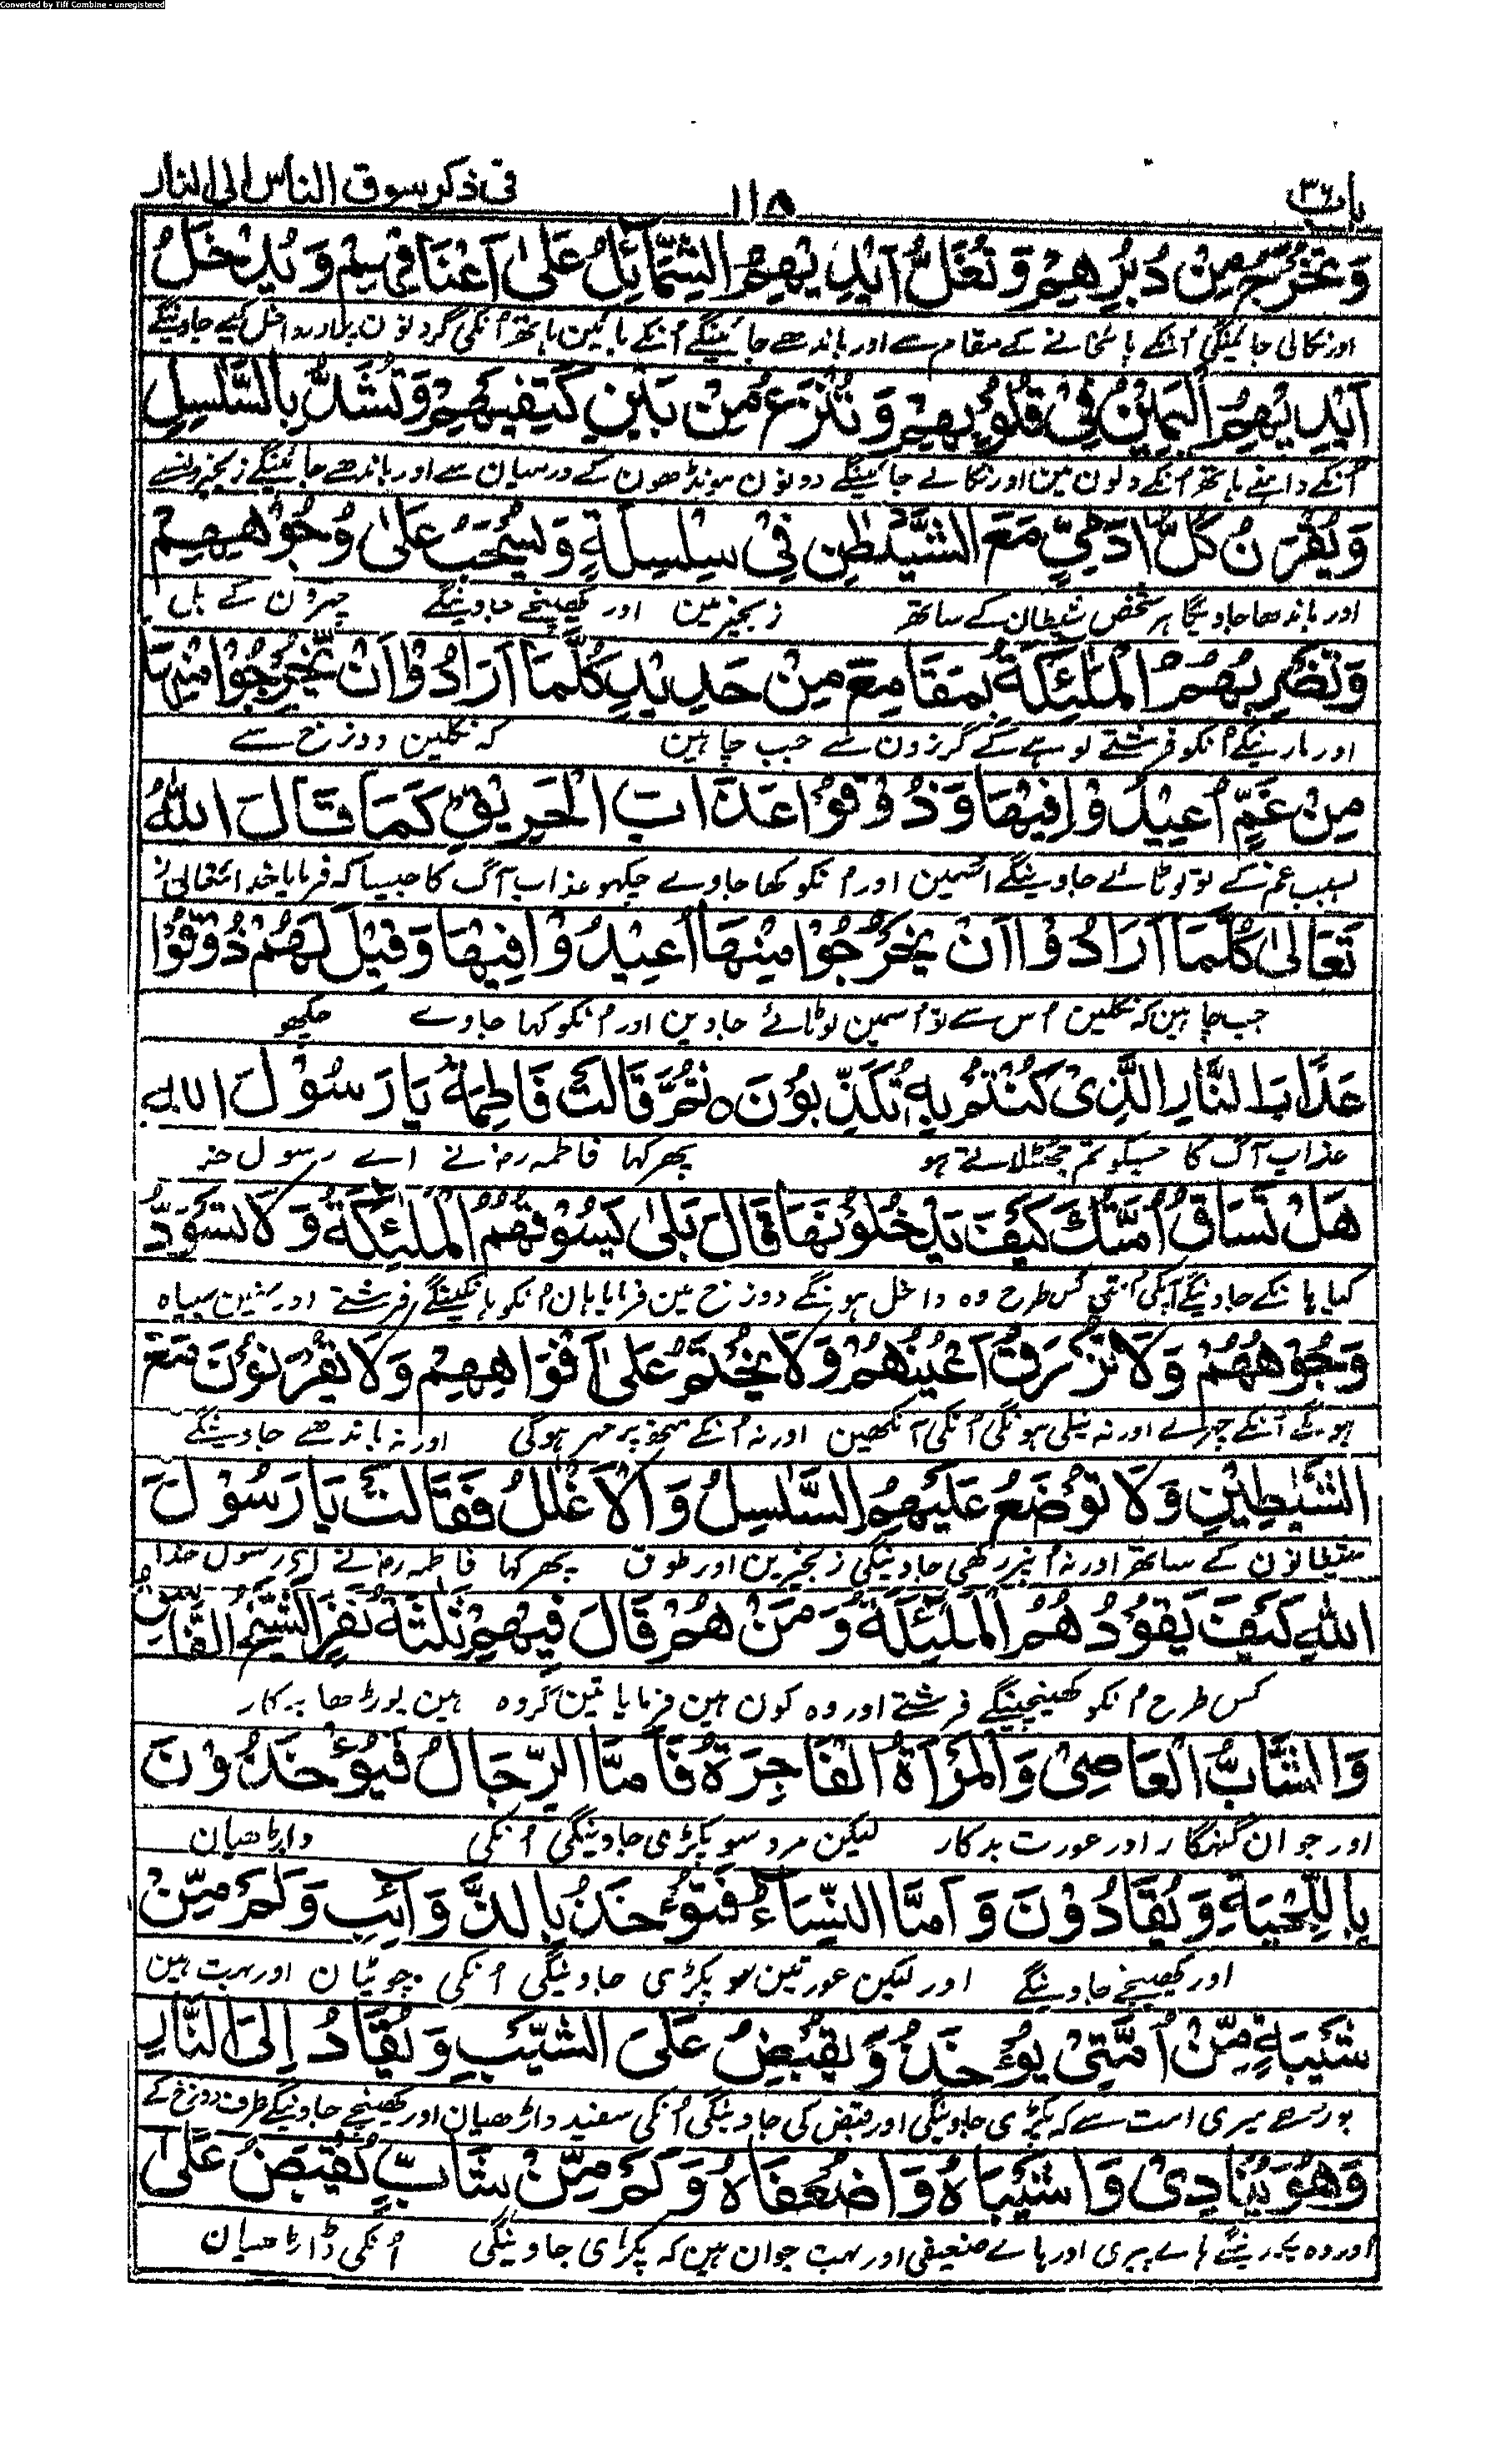 Converted by Tiff Combine - unregistered
باب ۳۶ ۱۱۵ فی ذکر سوق الناس الی النار
وَتَخْرُجُ مِنْ دُبُرِهِمْ وَتُغَلُّ اَيْدِيْهِمُ الشِّمَآئِلُ عَلٰى اَعْنَاقِهِمْ وَيُدْخَلُ
اور نکالی جائینگی اُنکے پائخانے کے مقام سے اور باندھے جائینگے اُنکے بائین ہاتھ اُنکی گردنون پر اور داخل کیے جاوینگے
اَيْدِيْهِمُ الْيَمِيْنُ فِيْ قُلُوْبِهِمْ وَتُنْزَعُ مِنْ بَيْنِ كَتِفَيْهِمْ وَتُشَدُّ بِالسَّلٰسِلِ
اُنکے داہنے ہاتھ اُنکے دلون مین اور نکالے جائینگے دونون مونڈھون کے درمیان سے اور باندھے جائینگے زنجیرونسے
وَيُقْرَنُ كُلُّ اٰدَمِيٍّ مَعَ الشَّيْطٰنِ فِيْ سِلْسِلَةٍ وَيُسْحَبُ عَلٰى وُجُوْهِهِمْ
اور باندھا جاویگا ہر شخص شیطان کے ساتھ زنجیر مین اور کھینچے جاوینگے چہرون کے بل
وَتَضْرِبُهُمُ الْمَلٰئِكَةُ بِمَقَامِعَ مِنْ حَدِيْدٍ كُلَّمَا اَرَادُوْا اَنْ يَّخْرُجُوْا مِنْهَا
اور مارینگے اُنکو فرشتے لوہے کے گرزون سے جب چاہین کہ نکلین دوزخ سے
مِنْ غَمٍّ اُعِيْدُوْا فِيْهَا وَذُوْقُوْا عَذَابَ الْحَرِيْقِ كَمَا قَالَ اللّٰهُ
بسبب غم کے تو لوٹائے جاوینگے اسمین اور اُنکو کہا جاوے چکھو عذاب آگ کا جیسا کہ فرمایا خدا تعالیٰ نے
تَعَالٰى كُلَّمَا اَرَادُوْا اَنْ يَخْرُجُوْا مِنْهَا اُعِيْدُوْا فِيْهَا وَقِيْلَ لَهُمْ ذُوْقُوْا
جب چاہین کہ نکلین اُس سے تو اُسمین لوٹائے جاوین اور اُنکو کہا جاوے چکھو
عَذَابَ النَّارِ الَّذِيْ كُنْتُمْ بِهٖ تُكَذِّبُوْنَ ثُمَّ قَالَتْ فَاطِمَةُ يَا رَسُوْلَ اللّٰهِ
عذاب آگ کا جسکو تم جھٹلاتے ہو پھر کہا فاطمہ رض نے اے رسول خدا
هَلْ تُسَاقُ اُمَّتُكَ كَيْفَ يَدْخُلُوْنَهَا قَالَ بَلٰى يَسُوْقُهُمُ الْمَلٰئِكَةُ وَلَا تَسْوَدُّ
کیا ہانکے جاوینگے آپکی اُمتی کس طرح وہ داخل ہونگے دوزخ مین فرمایا ہان اُنکو ہانکینگے فرشتے اور نہین سیاہ
وُجُوْهُهُمْ وَلَا تَزْرَقُّ اَعْيُنُهُمْ وَلَا يُخْتَمُ عَلٰى اَفْوَاهِهِمْ وَلَا يُقْرَنُوْنَ مَعَ
ہونگے اُنکے چہرے اور نہ نیلی ہونگی اُنکی آنکھین اور نہ اُنکے منھ پر مہر ہوگی اور نہ باندھے جاوینگے
الشَّيٰطِيْنِ وَلَا تُوْضَعُ عَلَيْهِمُ السَّلٰسِلُ وَالْاَغْلٰلُ فَقَالَتْ يَا رَسُوْلَ
شیطانون کے ساتھ اور نہ اُنپر رکھی جاوینگی زنجیرین اور طوق پھر کہا فاطمہ رض نے اے رسول خدا
اللّٰهِ كَيْفَ يَقُوْدُهُمُ الْمَلٰئِكَةُ وَمَنْ هُمْ قَالَ فِيْهِمْ ثَلٰثَةُ نَفَرٍ الشَّيْخُ الْفَاسِقُ
کس طرح اُنکو کھینچینگے فرشتے اور وہ کون ہین فرمایا تین گروہ ہین بوڑھا بدکار
وَالشَّابُّ الْعَاصِيْ وَالْمَرْاَةُ الْفَاجِرَةُ فَاَمَّا الرِّجَالُ فَيُؤْخَذُوْنَ
اور جوان گنہگار اور عورت بدکار لیکن مرد سو پکڑی جاوینگی اُنکی داڑھیان
بِاللِّحْيَةِ وَيُقَادُوْنَ وَاَمَّا النِّسَآءُ فَتُؤْخَذُ بِالذَّوَآئِبِ وَكَمْ مِّنْ
اور کھینچے جاوینگے اور لیکن عورتین سو پکڑی جاوینگی اُنکی چوٹیان اور بہت ہین
شَيْبَةٍ مِّنْ اُمَّتِيْ يُؤْخَذُ وَيُقْبَضُ عَلَى الشَّيْبِ وَيُقَادُ اِلَى النَّارِ
بوڑھے میری امت سے کہ پکڑی جاوینگی اور قبض کی جاوینگی اُنکی سفید داڑھیان اور کھینچے جاوینگے طرف دوزخ کے
وَهُوَ يُنَادِيْ وَا شَيْبَاهُ وَا ضُعْفَاهُ وَكَمْ مِّنْ شَابٍّ يُقْبَضُ عَلٰى
اور وہ پکارینگے ہاے پیری اور ہاے ضعیفی اور بہت جوان ہین کہ پکڑی جاوینگی اُنکی ڈاڑھیان